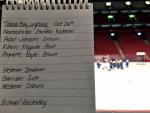 Tampa Bay Lightning Oct 26th
Namestnikov Stamkos Kucherov
Palat Johnson Drouin
Killorn Filppula Point
Paquette Boyle Brown
Hedman Stralman
Garrison Sustr
Nesterov Coburn
Bishop/ Vasilevskiy